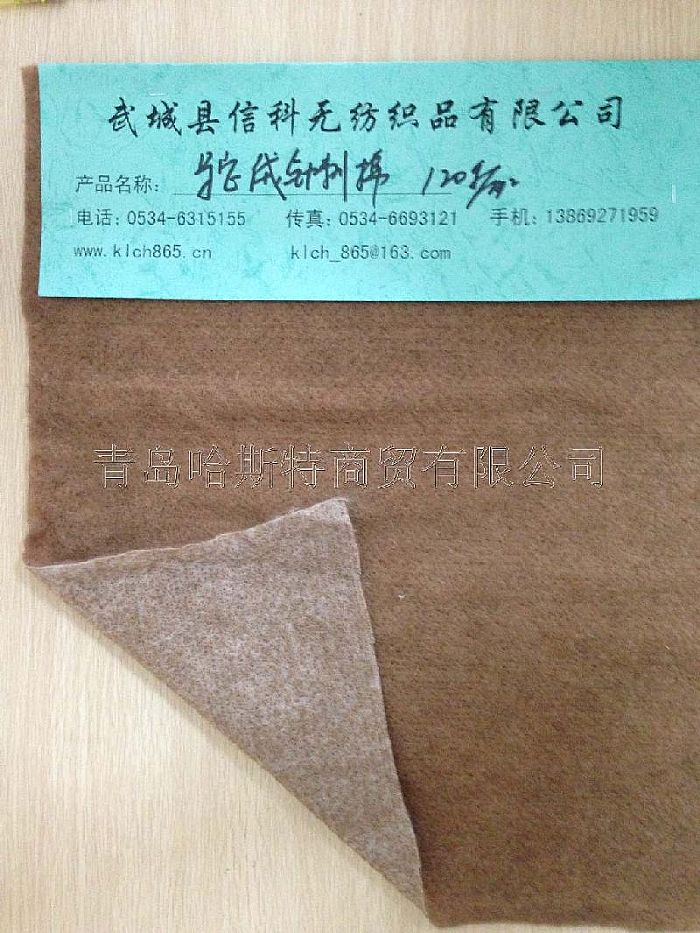 武城县信科无纺织品有限公司
产品名称: 驼绒针刺棉 120g/m²
电话: 0534-6315155 传真: 0534-6693121 手机: 13869271959
www.klch865.cn klch_865@163.com
青岛哈斯特商贸有限公司